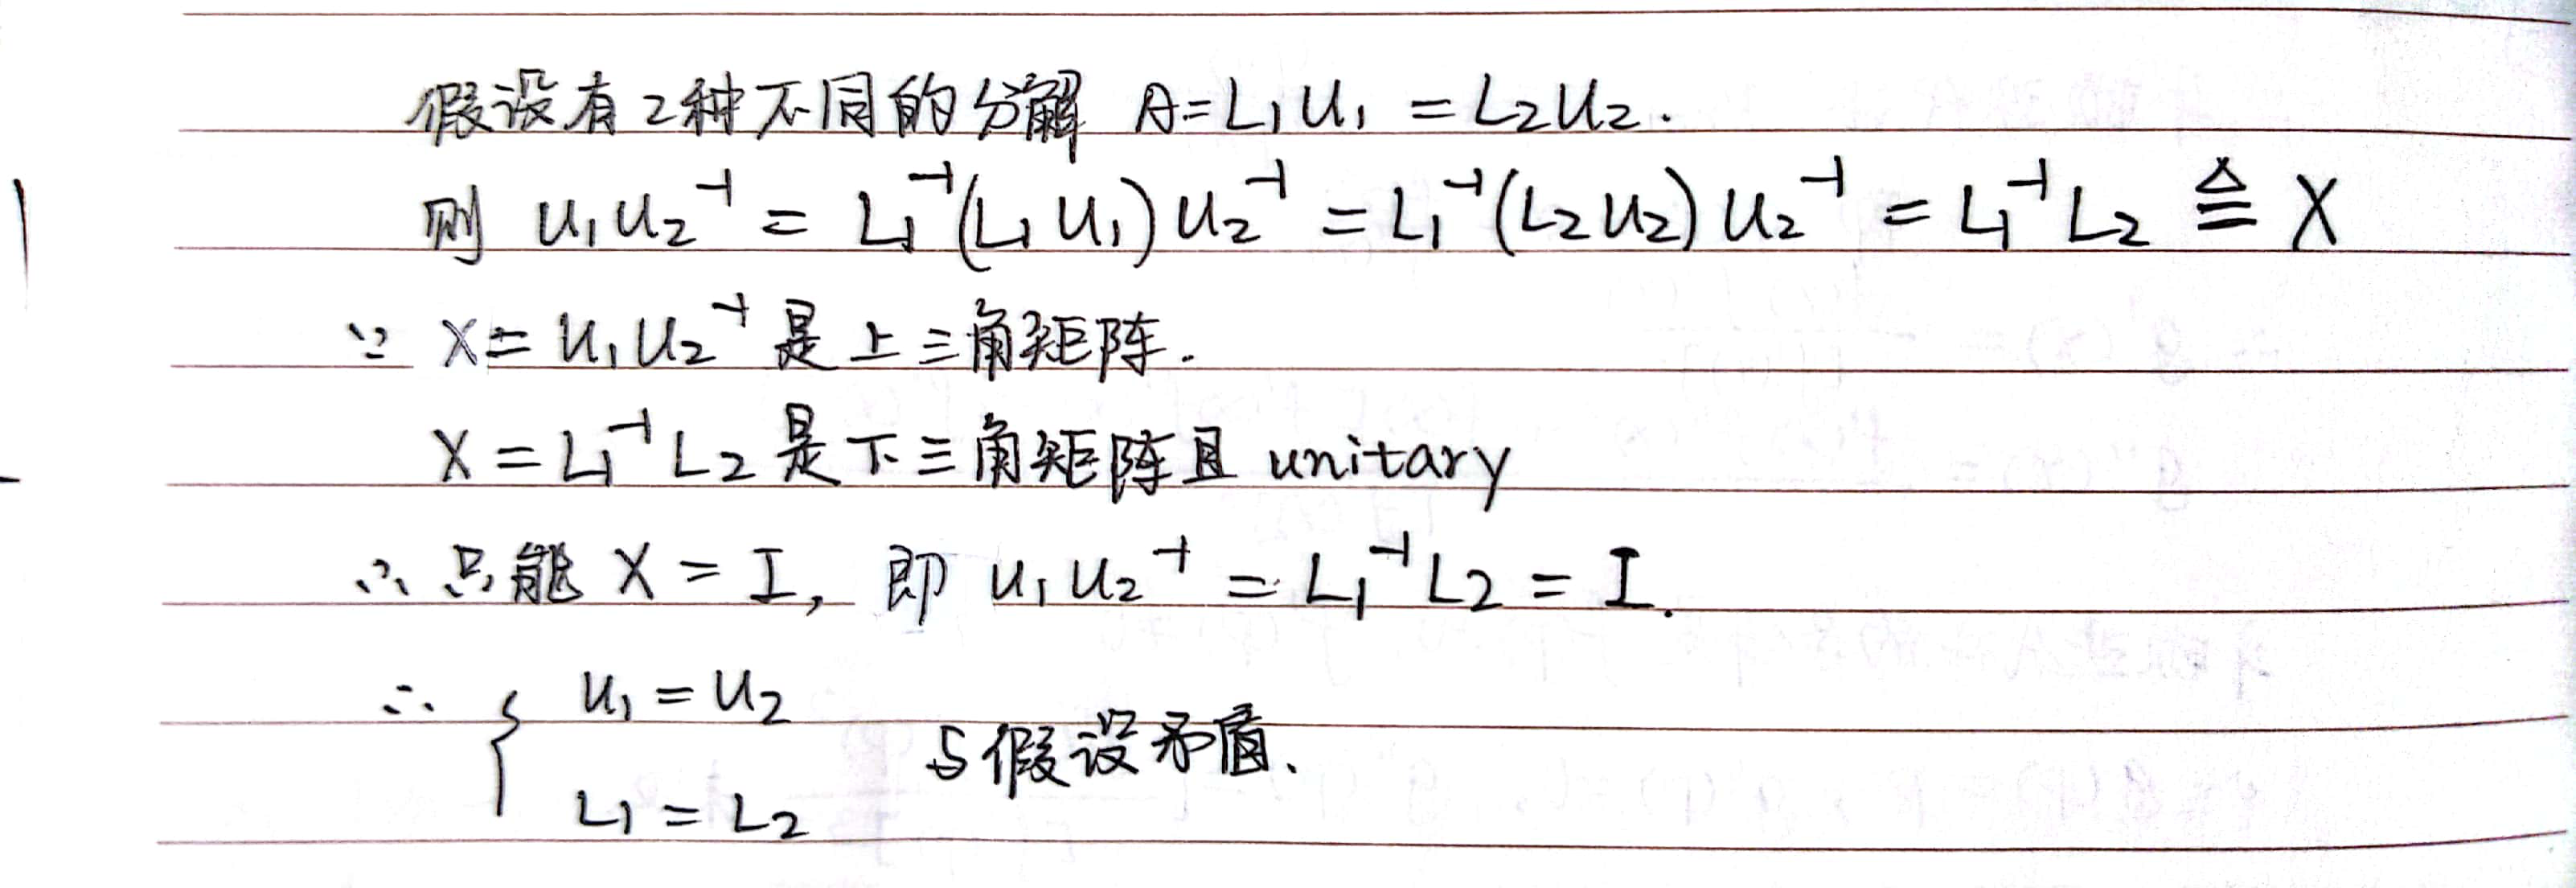 假设有2种不同的分解 A=L₁U₁ = L₂U₂.
则 U₁U₂⁻¹ = L₁⁻¹(L₁U₁)U₂⁻¹ = L₁⁻¹(L₂U₂)U₂⁻¹ = L₁⁻¹L₂ ≜ X
∵ X = U₁U₂⁻¹ 是上三角矩阵.
X = L₁⁻¹L₂ 是下三角矩阵且 unitary
∴ 只能 X = I, 即 U₁U₂⁻¹ = L₁⁻¹L₂ = I.
∴ { U₁ = U₂
与假设矛盾.
L₁ = L₂